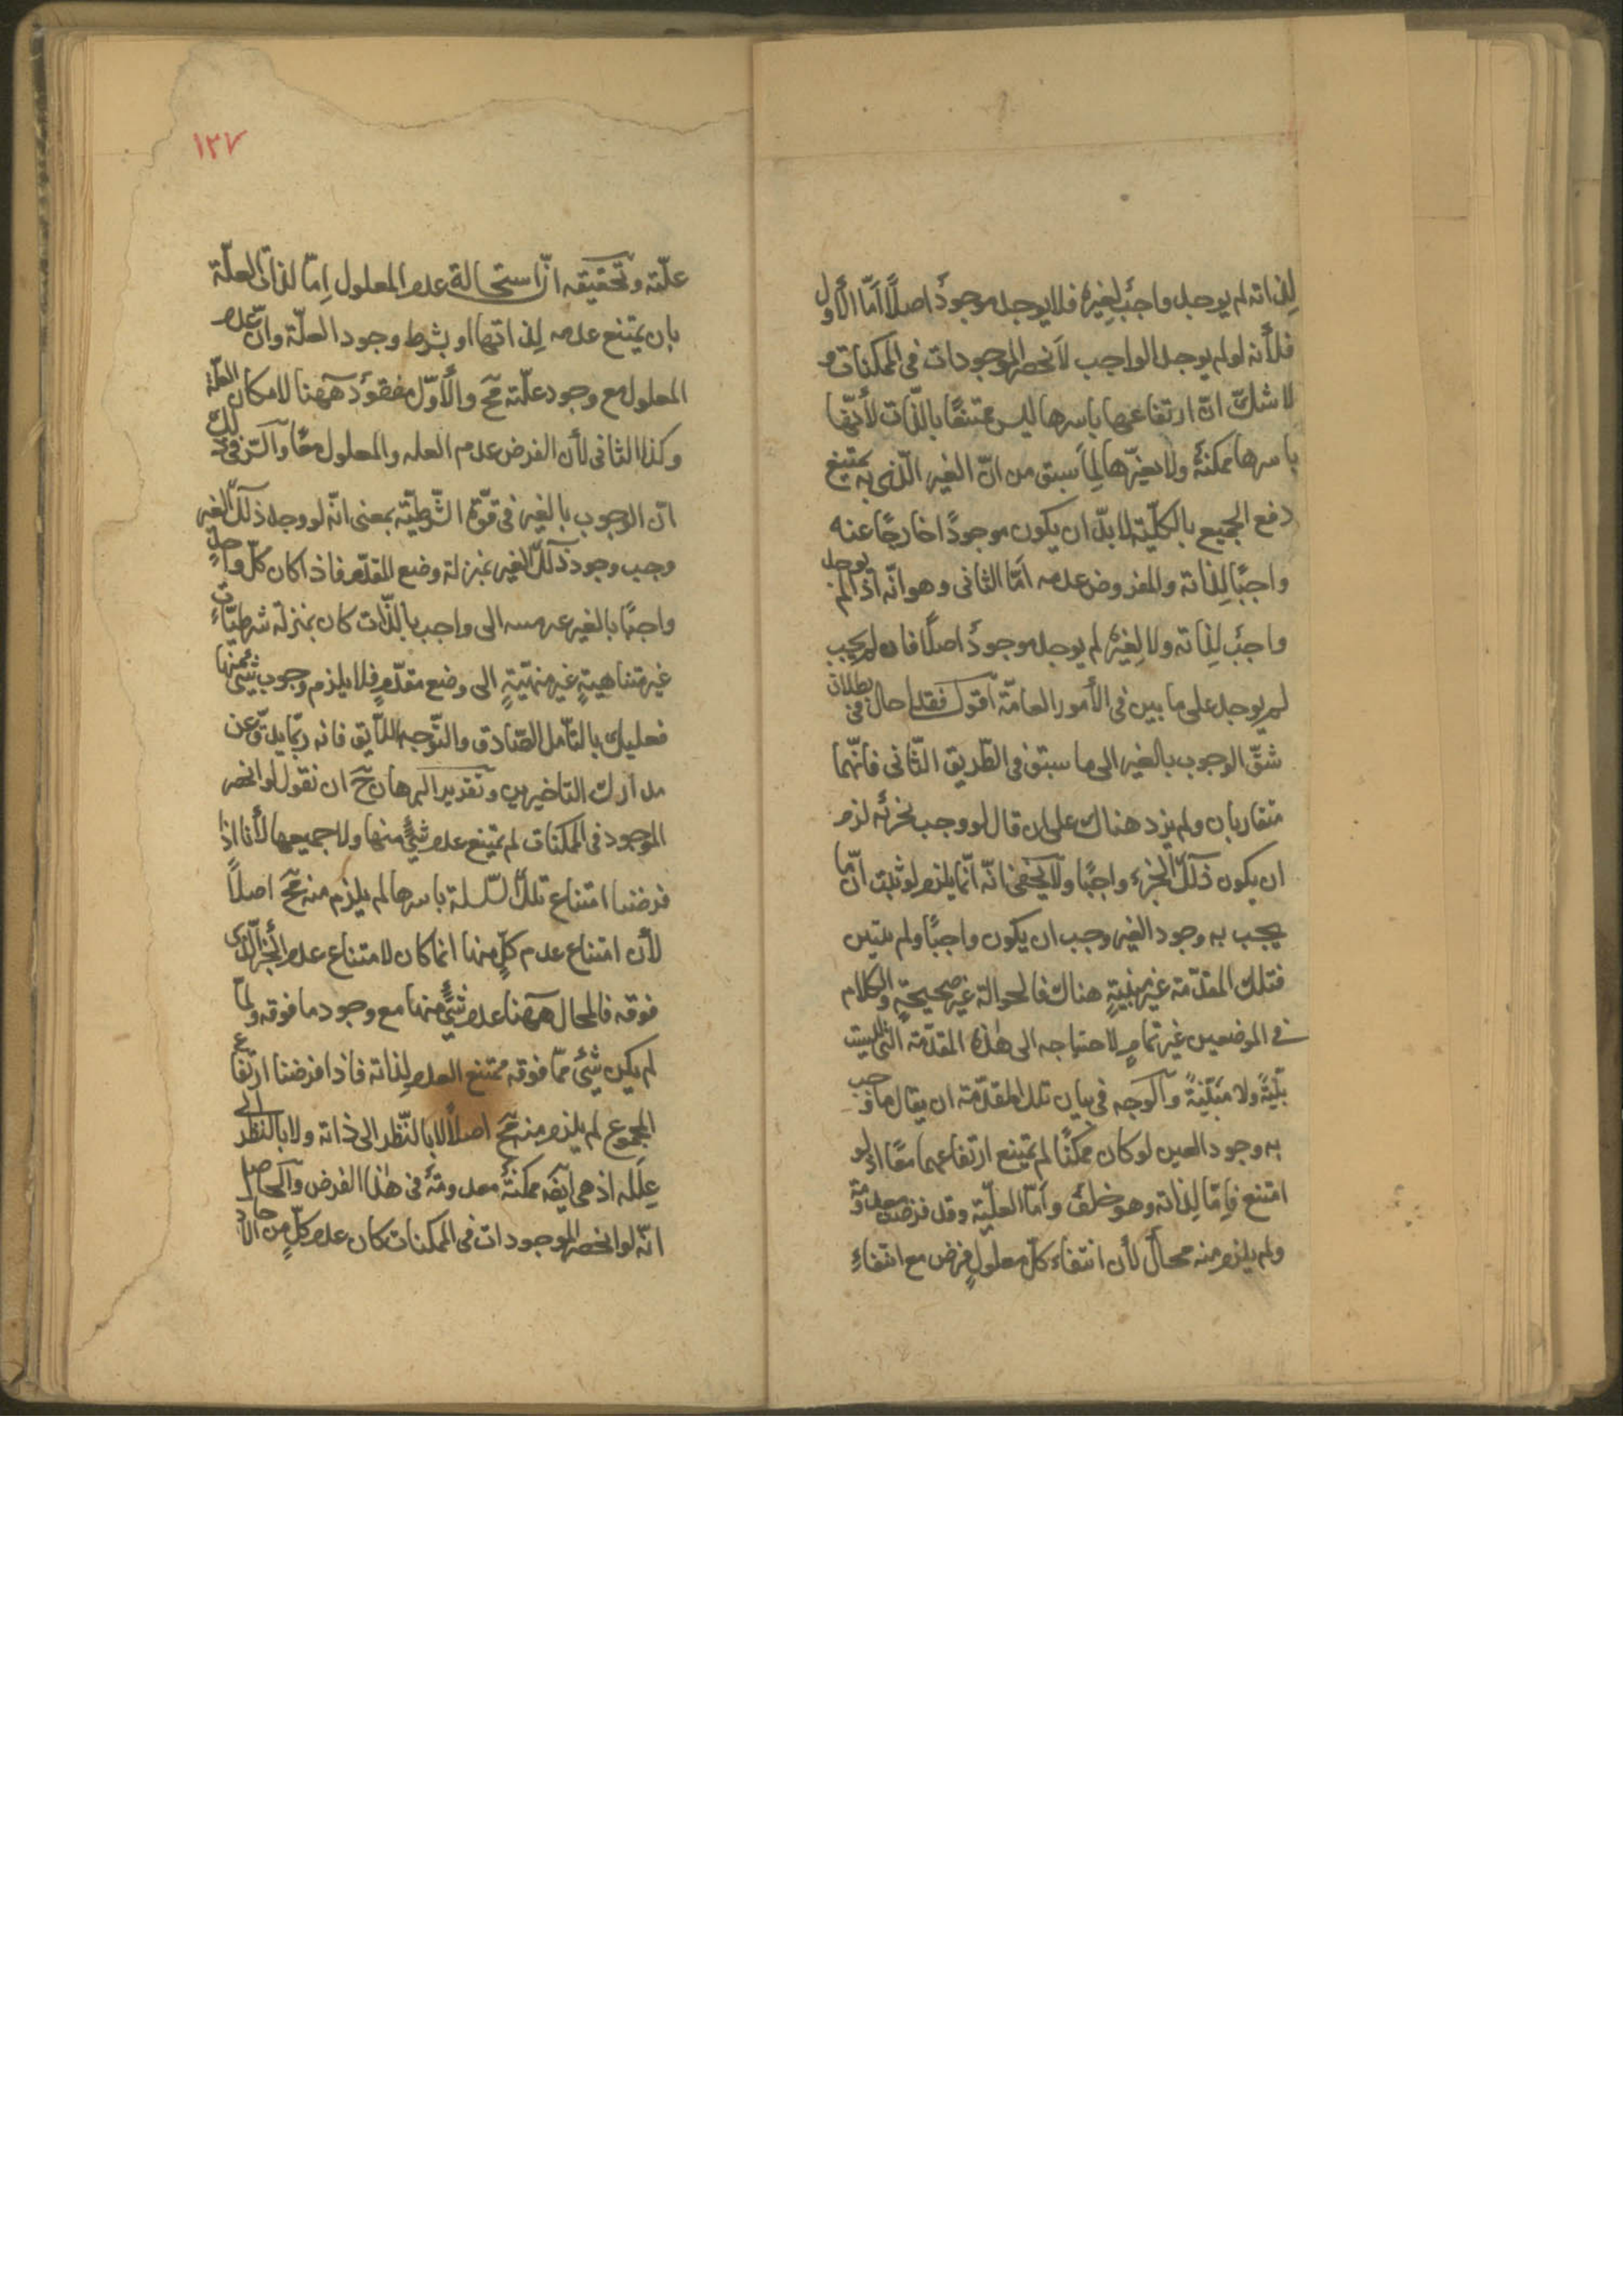 لِذاته لم يوجد واجبٌ لغيره فلا يوجد موجودٌ اصلًا امّا الأول
فلأنه لو لم يوجد الواجب لأنحصر الموجودات في الممكنات و
لا شك انّ ارتفاعها باسرها ليس ممتنعًا بالذّات لأنّها
باسرها ممكنةٌ ولا بغيرها لِما سبق من انّ الغير الّذى به يمتنع
رفع الجميع بالكلّية لا بدّ ان يكون موجودًا خارجًا عنه
واجبًا لِذاته والمفروض عدمه امّا الثانى وهو انّه اذا لم يوجد
واجبٌ لِذاته ولا لِغيره لم يوجد موجودٌ اصلًا فان لم يجب
لم يوجد على ما بين في الأمور العامّة اقول فقد احال في بطلان
شقّ الوجوب بالغير الى ما سبق في الطّريق الثّانى فانّهما
متقاربان ولم يزد هناك على ان قال لو وجب بجزئه لزم
ان يكون ذلك الجزء واجبًا ولا يخفى انّه انّما يلزم لو ثبت انّ ما
يجب به وجود الغير وجب ان يكون واجبًا ولم يتبين
فتلك المقدّمة غير مبنيةٍ هناك فالحوالة غير صحيحةٍ والكلام
في الموضعين غير تمامٍ لاحتياجه الى هذه المقدّمة التى ليست
بيّنةً ولا مبيّنةً والوجه في بيان تلك المقدّمة ان يقال ما وجب
به وجود الغير لو كان ممكنًا لم يمتنع ارتفاعهما معًا اذ لو
امتنع فامّا لِذاته وهو خلفٌ وامّا لعلّيته وقد فرضت معدومة
ولم يلزم منه محالٌ لأن انتفاء كلّ معلولٍ فرض مع انتفاءِ
١٢٧
علّته وتحقيقه انّ استحالة عدم المعلول اِمّا لذاتى العلّة
بان يمتنع عدمه لِذاتها او بشرط وجود العلّة وانّ عدم
المعلول مع وجود علّته مح والأوّل مفقودٌ ههنا لامكان العلّة
وكذا الثانى لأن الفرض عدم العله والمعلول معًا والسّر في ذلك
انّ الوجوب بالغير في قوّة الشّرطيّة بمعنى انّه لو وجد ذلك الغير
وجب وجود ذلك الغير بمنزلة وضع المقدّم فاذا كان كلّ واحدٍ
واجبًا بالغير الى واجب بالذّات كان بمنزلة شرطيّاتٍ
غير متناهيةٍ غير منهيّةٍ الى وضع مقدّمٍ فلا يلزم وجوب شئ منها
فعليك بالتّأمل الصّادق والتّوجه اللّايق فانه ربّما يدقّ عن
مدارك التاخيرين وتقرير البرهان ح ان نقول لو انحصر
الموجود في الممكنات لم يمتنع عدم شئٍ منها ولا جميعها لأنا اذا
فرضنا امتناع تلك السّلسلة باسرها لم يلزم منه مح اصلًا
لأن امتناع عدم كلٍّ منها انما كان لامتناع عدم الجزء الّذى
فوقه فالمحال ههنا عدم شئٍ منها مع وجود ما فوقه ولمّا
لم يكن شئ ممّا فوقه ممتنع العدم لِذاته فاذا فرضنا ارتفاع
المجموع لم يلزم منه مح اصلًا لا بالنّظر الى ذاته ولا بالنّظر الى
عِلله اذ هى ايضه ممكنةٌ معدومةٌ في هذا الفرض والحاصل
انّه لو انحصر الموجودات في الممكنات كان عدم كلٍّ من الآحاد